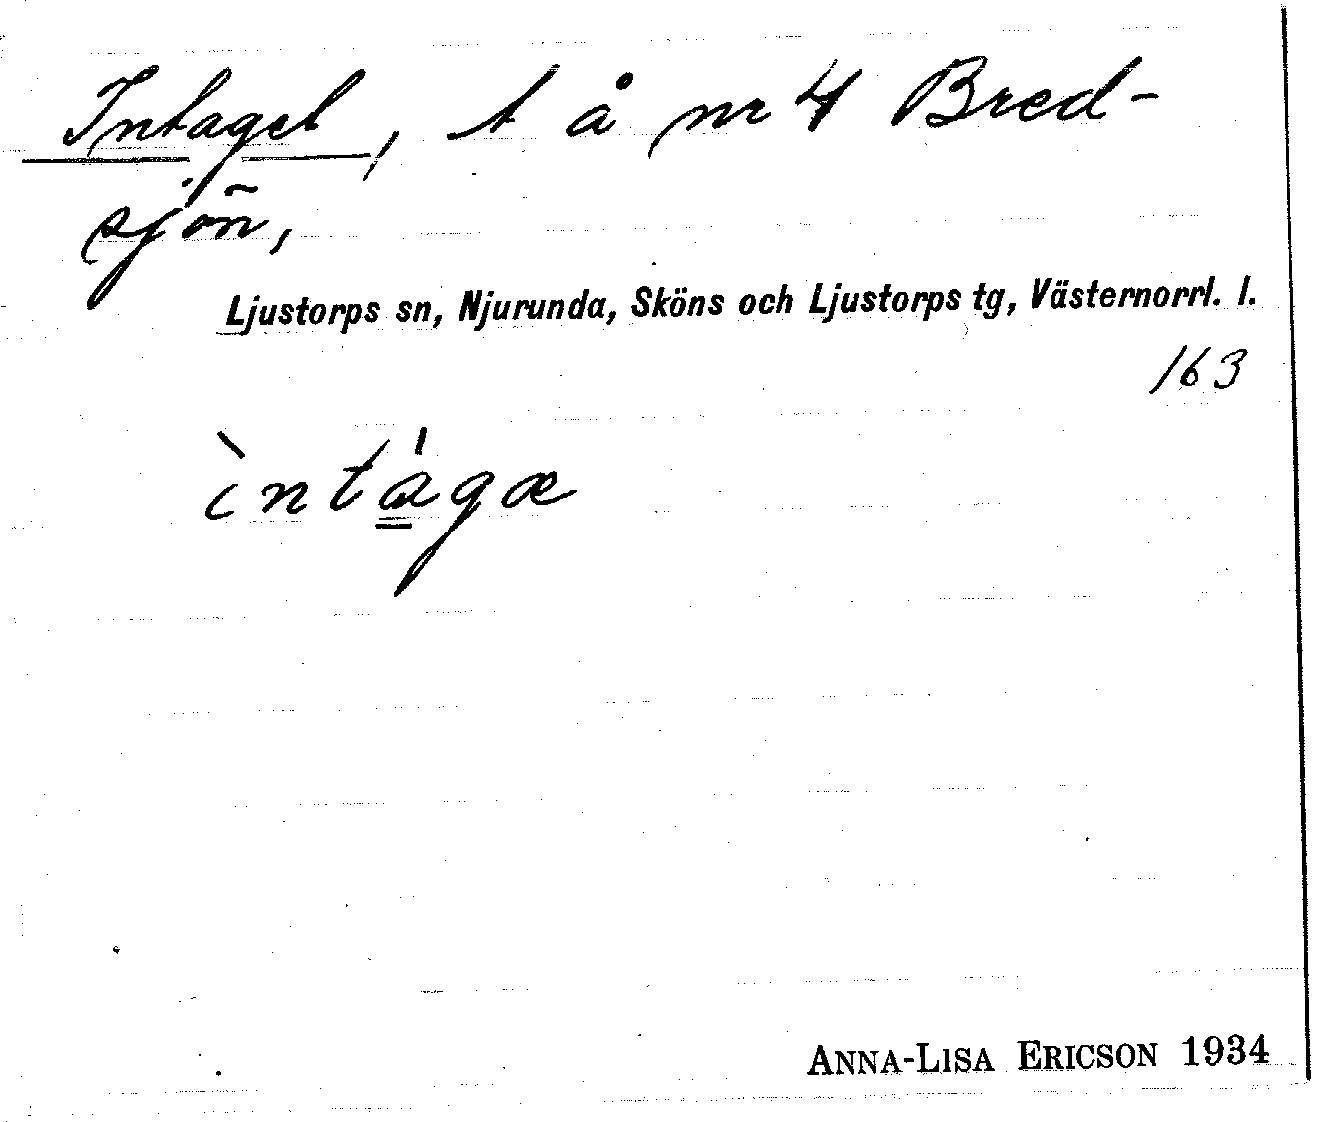 Intaget, t å nr 4 Bred-
sjön,
Ljustorps sn, Njurunda, Sköns och Ljustorps tg, Västernorrl. l.
163
ìntágæ
ANNA-LISA ERICSON 1934